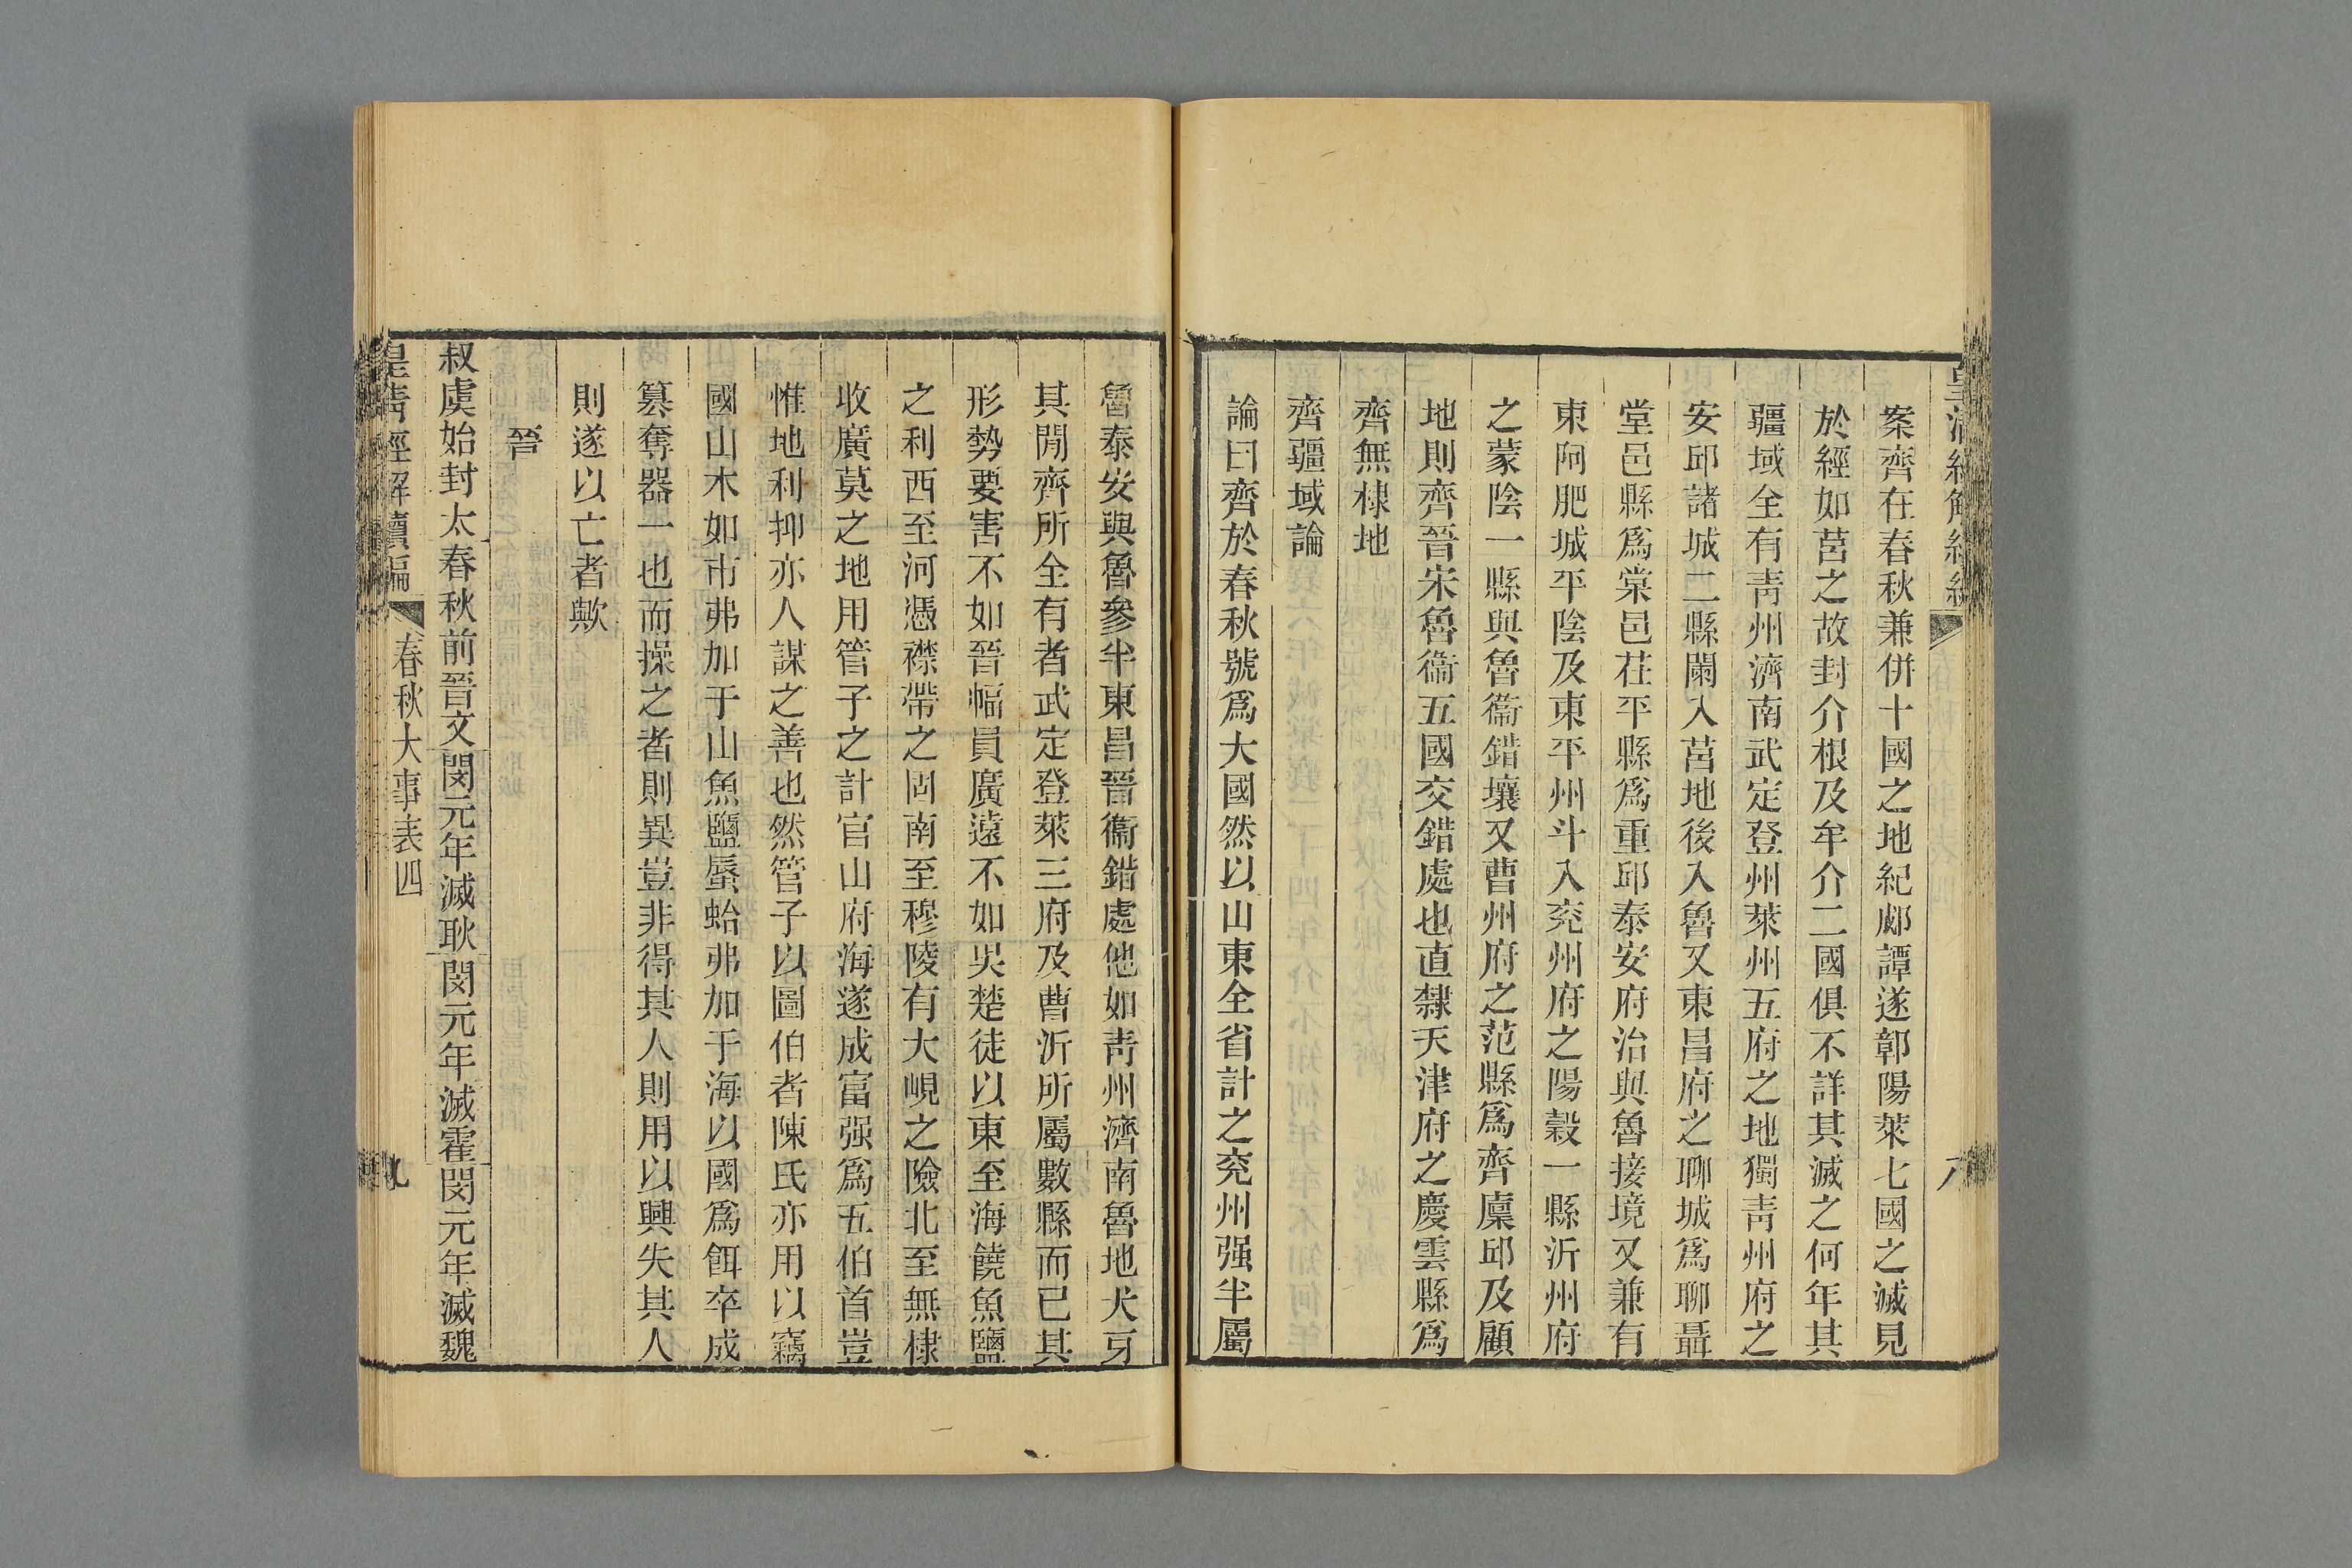 案齊在春秋兼併十國之地紀郕譚遂鄣陽萊七國之滅見
於經如莒之故封介根及牟介二國俱不詳其滅之何年其
疆域全有靑州濟南武定登州萊州五府之地獨靑州府之
安邱諸城二縣闌入莒地後入魯又東昌府之聊城爲聊聶
堂邑縣爲棠邑茌平縣爲重邱泰安府治與魯接境又兼有
東阿肥城平陰及東平州斗入兖州府之陽穀一縣沂州府
之蒙陰一縣與魯衞錯壤又曹州府之范縣爲齊廩邱及顧
地則齊晉宋魯衞五國交錯處也直隸天津府之慶雲縣爲
齊無棣地
齊疆域論
論曰齊於春秋號爲大國然以山東全省計之兖州强半屬
魯泰安與魯參半東昌晉衞錯處他如靑州濟南魯地犬牙
其閒齊所全有者武定登萊三府及曹沂所屬數縣而已其
形勢要害不如晉幅員廣遠不如吳楚徒以東至海饒魚鹽
之利西至河憑襟帶之固南至穆陵有大峴之險北至無棣
收廣莫之地用管子之計官山府海遂成富强爲五伯首豈
惟地利抑亦人謀之善也然管子以圖伯者陳氏亦用以竊
國山木如市弗加于山魚鹽蜃蛤弗加于海以國爲餌卒成
篡奪器一也而操之者則異豈非得其人則用以興失其人
則遂以亡者歟
晉
叔虞始封太春秋前晉文閔元年滅耿閔元年滅霍閔元年滅魏
皇淸經解續編 春秋大事表四 九